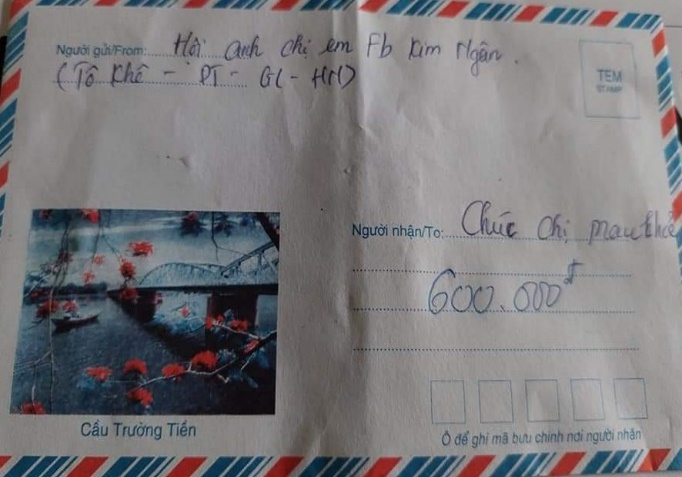 Người gửi/From: Hội anh chị em Fb Kim Ngân.
(Tô Khê - PT - GL - HN)
TEM
STAMP
Người nhận/To: Chúc chị mau khỏe
600.000đ
Cầu Trường Tiền
Ô để ghi mã bưu chính nơi người nhận